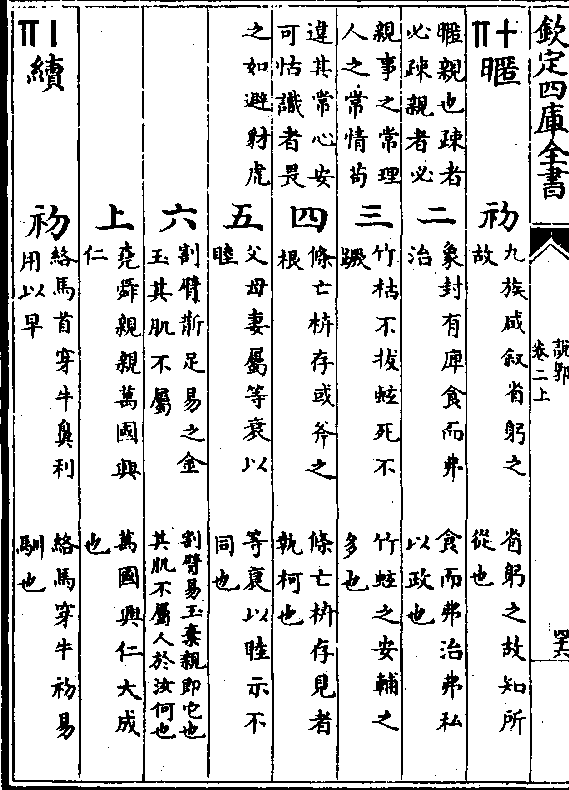 欽定四庫全書
說郛
卷二上
暱
暱親也疎者
必疎親者必
親事之常理
人之常情苟
違其常心安
可怙識者畏
之如避豺虎
初
九族咸叙省躬之
故
省躬之故知所
從也
二
象封有庳食而弗
治
食而弗治弗私
以政也
三
竹枯不拔蚿死不
蹶
竹蚿之安輔之
多也
四
條亡枿存或斧之
根
條亡枿存見者
執柯也
五
父母妻屬等衰以
睦
等衰以睦示不
同也
六
割臂斮足易之金
玉其肌不屬
割臂易玉棄親即它也
其肌不屬人於汝何也
上
堯舜親親萬國興
仁
萬國興仁大成
也
續
初
絡馬首穿牛鼻利
用以早
絡馬穿牛初易
馴也